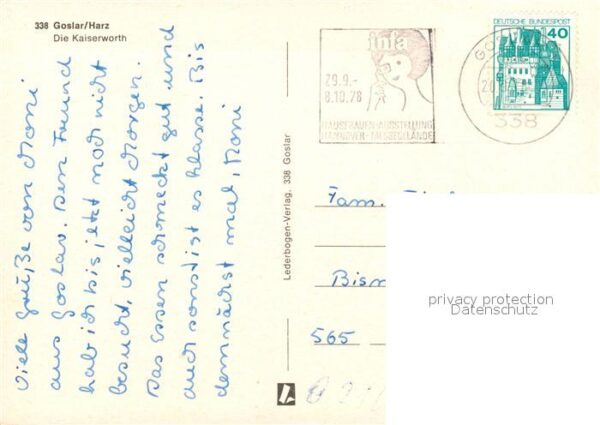 338 Goslar/Harz
Die Kaiserworth
Viele Grüße von Moni
aus Goslar. Den Freund
hab ich bis jetzt noch nicht
besucht, vielleicht Morgen.
Das Essen schmeckt gut und
auch sonst ist es klasse. Bis
demnächst mal, Moni
Lederbogen-Verlag, 338 Goslar
infa
29.9.-
8.10.78
HAUSFRAUEN-AUSSTELLUNG
HANNOVER-MESSEGELÄNDE
338
DEUTSCHE BUNDESPOST
40
Fam.
Bism
565
privacy protection
Datenschutz